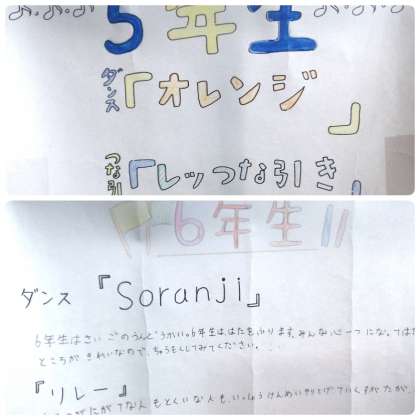 5年生
ダンス『オレンジ』
つな引『レッつな引き』
6年生
ダンス『Soranji』
6年生はさいごのうんどうかい。6年生は、はたをふります。みんな心一つにな
ところが きれいなので、ちゅうもくしてみてください。
『リレー』
がてな人もとくいな人も、いっしょうけんめい